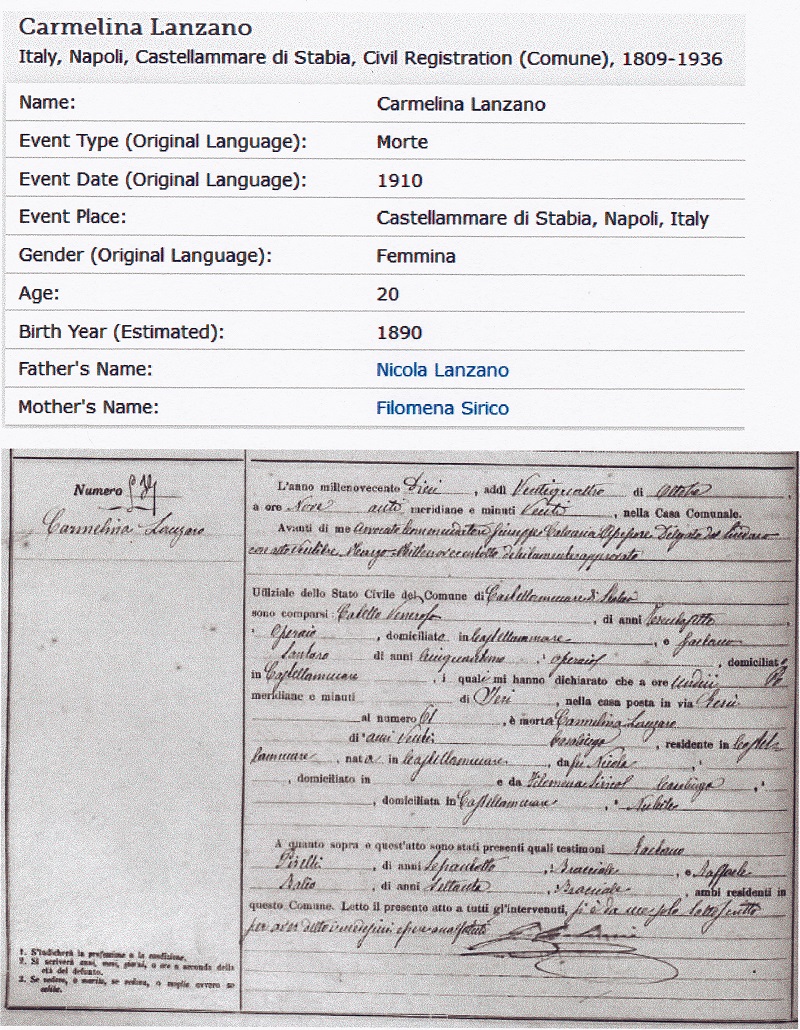 Carmelina Lanzano
Italy, Napoli, Castellammare di Stabia, Civil Registration (Comune), 1809-1936
Name: Carmelina Lanzano
Event Type (Original Language): Morte
Event Date (Original Language): 1910
Event Place: Castellammare di Stabia, Napoli, Italy
Gender (Original Language): Femmina
Age: 20
Birth Year (Estimated): 1890
Father's Name: Nicola Lanzano
Mother's Name: Filomena Sirico
Numero
Carmelina Lanzaro
L'anno millenovecento Dieci, addì Ventiquattro di Ottobre,
a ore Nove anti meridiane e minuti Venti, nella Casa Comunale.
Avanti di me Avvocato Commendatore Giuseppe Delegato dal Sindaco
con atto Marzo Millenovecentotto debitamente approvato
Uffiziale dello Stato Civile del Comune di Castellammare di Stabia
sono comparsi: Catello, di anni,
Operaio, domiciliato in Castellammare, e Gaetano
Santaro di anni, operaio, domiciliato
in Castellammare, i quali mi hanno dichiarato che a ore Undici
meridiane e minuti di Ieri, nella casa posta in via Gesù
al numero 61, è morta Carmelina Lanzaro
di anni Venti Casalinga, residente in Castel-
lammare, nata in Castellammare, da fu Nicola,
, domiciliato in e da Filomena Sirico, Casalinga,
, domiciliata in Castellammare, Nubile
A quanto sopra e quest'atto sono stati presenti quali testimoni Gaetano
, di anni, Bracciale, e Raffaele
, di anni Settanta, Bracciale, ambi residenti in
questo Comune. Letto il presente atto a tutti gl'intervenuti, si è da me solo sottoscritto
per aver detto i medesimi essere analfabeti
1. S'indicherà la professione o la condizione.
2. Si scriverà anni, mesi, giorni, o ore a seconda della
età del defunto.
3. Se vedovo, o marito, se vedova, o moglie ovvero se
celibe.